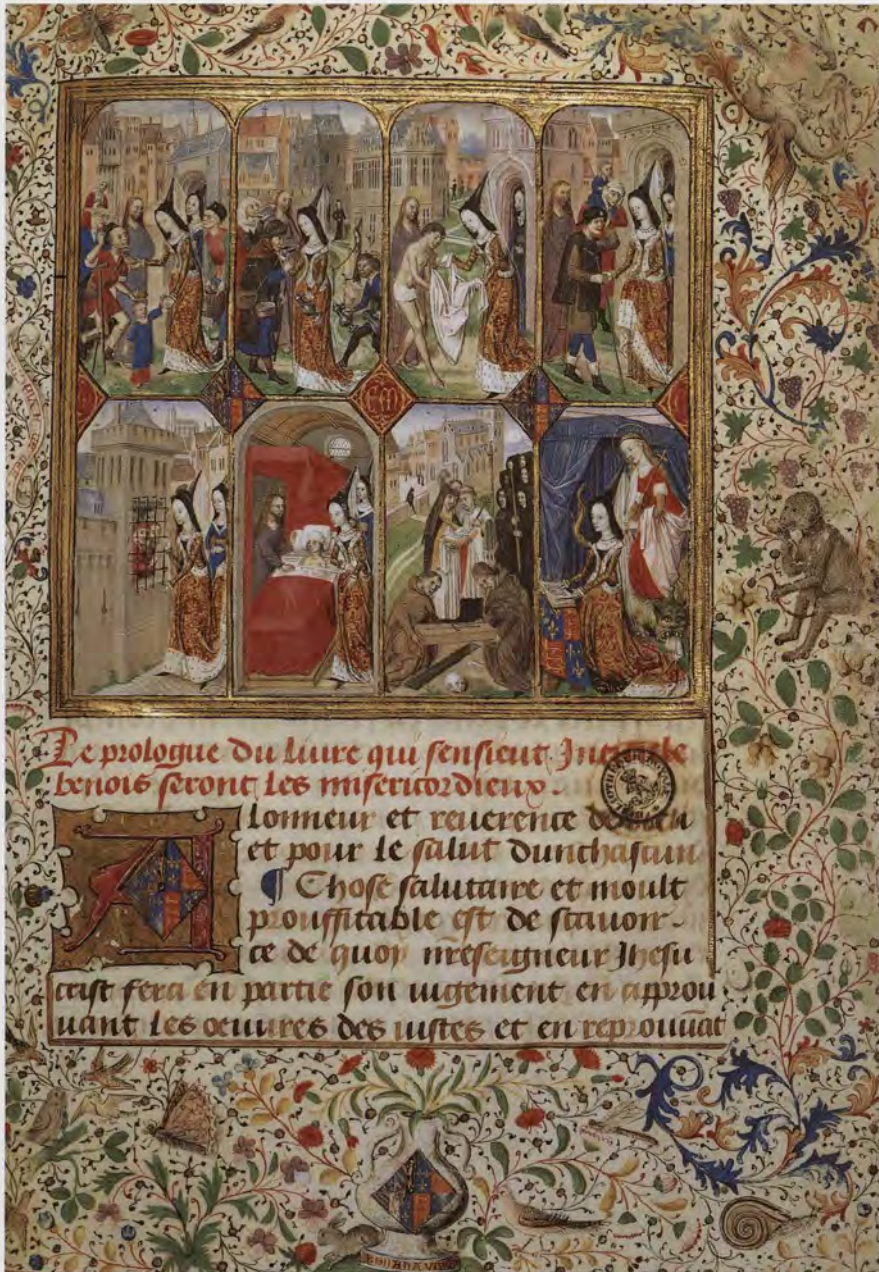 CM
Le prologue du liure qui sensieut
benois seront les misericordieux.
A lonneur et reuerence de dieu
et pour le salut dunchascun
¶ Chose salutaire et moult
prouffitable est de scauoir
ce de quoy nreseigneur Jhesu
crist fera en partie son iugement en approu
uant les oeuures des iustes et en reprouuāt